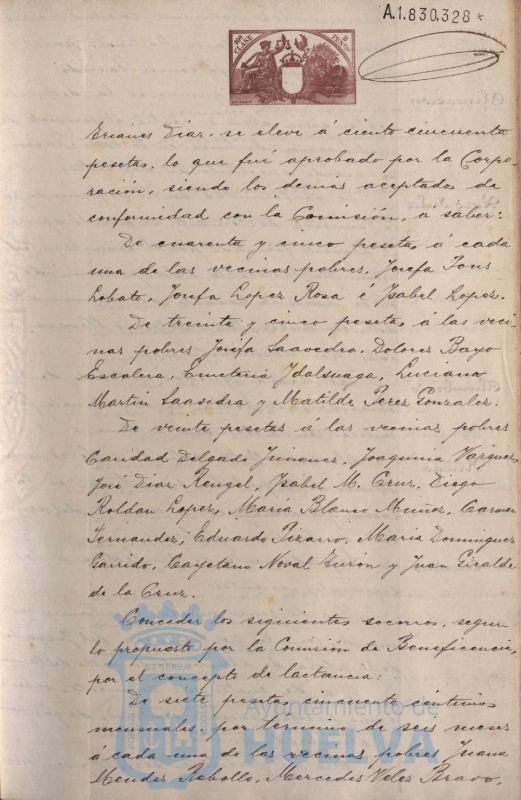 A.1.830.328*
10ª CLASE
2 PESETAS
Eriañes Díaz, se eleve á ciento cincuenta
pesetas, lo que fué aprobado por la Corpo-
ración, siendo los demás aceptados de
conformidad con la Comisión, a saber:
De cuarenta y cinco pesetas á cada
una de las vecinas pobres, Josefa Pons
Lobato, Josefa Lopez Rosa é Isabel Lopez.
De treinta y cinco pesetas á las veci-
nas pobres Josefa Saavedra, Dolores Bayo
Escalera, Emeteria Idalsuaga, Luciana
Martin Saavedra y Matilde Perez Gonzalez.
De veinte pesetas á las vecinas pobres
Caridad Delgado Jimenez, Joaquina Vazquez,
José Díaz Rengel, Isabel M. Cruz, Diego
Roldan Lopez, María Blanco Muñoz, Carmen
Fernandez, Eduardo Pizarro, María Dominguez
Garrido, Cayetano Noval Zurón y Juan Giralde
de la Cruz.
Conceder los siguientes socorros, segun
lo propuesto por la Comisión de Beneficencia,
por el concepto de lactancia:
De siete pesetas cincuenta centimos
mensuales por termino de seis meses
á cada una de las vecinas pobres Juana
Mendez Rebollo, Mercedes Velez Bravo,
Ayuntamiento de
HUELVA